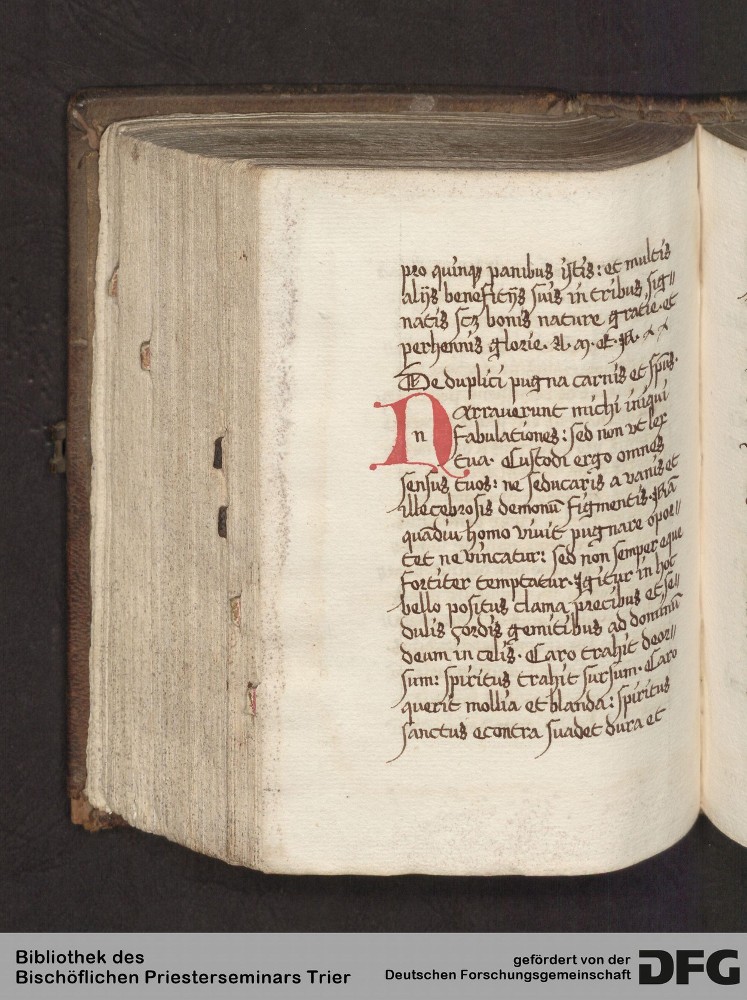 pro quinqꝫ panibus ijstis: et multis
alijs benefitijs suis in tribus sig⸗
natis scꝫ bonis nature gratie et
perhennis glorie.
De duplici pugna carnis et spūs.
Narrauerunt michi iniqui
n
fabulationes: sed non vt lex
tua. Custodi ergo omnes
sensus tuos: ne seducaris a vanis et
illecebrosis demonū figmentis. Nā
quādiu homo viuit pugnare opor⸗
tet ne vincatur: sed non semper eque
fortiter temptatur. Igitur in hoc
bello positus clama precibus et se⸗
dulis cordis gemitibus ad dominū
deum in celis. Caro trahit deor⸗
sum: spiritus trahit sursum. Caro
querit mollia et blanda: spiritus
sanctus econtra suadet dura et
Bibliothek des
Bischöflichen Priesterseminars Trier
gefördert von der
Deutschen Forschungsgemeinschaft
DFG